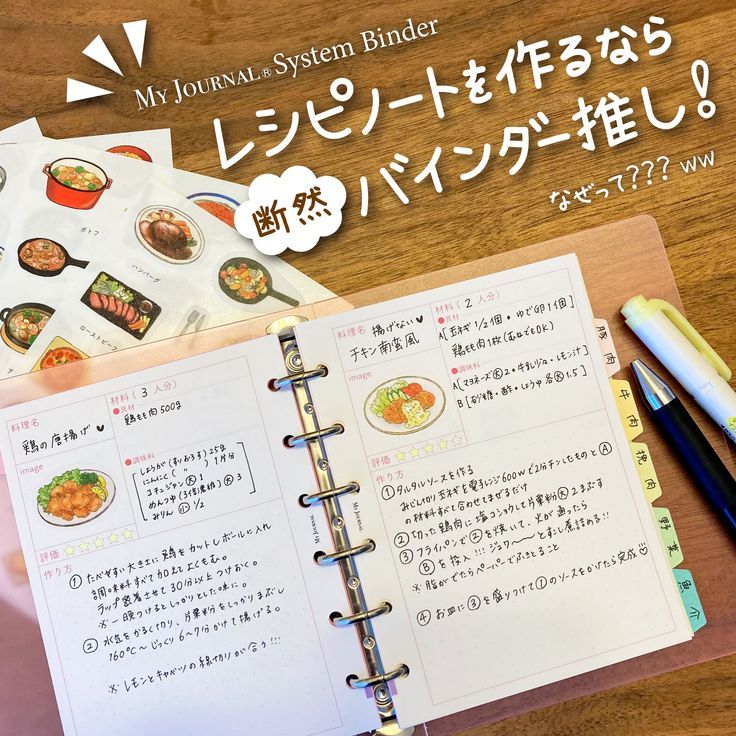 MY JOURNAL® System Binder
レシピノートを作るなら
断然
バインダー推し！
なぜって??? ww
ポトフ
ハンバーグ
ローストビーフ
料理名
鶏の唐揚げ♥
材料( 3 人分)
●具材
鶏もも肉 500g
image
●調味料
しょうが(すりおろす) 25g
にんにく( 〃 ) 1片分
コチュジャン ㊛ 1
めんつゆ(3倍濃縮) ㊛ 3
みりん ㊙ 1/2
評価
作り方
① たべやすい大きさに鶏をカットしボールに入れ
調味料すべて加えてよくもむ。
ラップ密着させて30分以上つけおく。
※一晩つけるとしっかりとした味に。
② 水気をかるく切り、片栗粉をしっかりまぶし
160℃〜じっくり6〜7分かけて揚げる。
※ レモンとキャベツの線切りが合う!!!
MY JOURNAL
料理名
揚げない♥
チキン南蛮風
材料( 2 人分)
●具材
A[玉ネギ 1/2個・ゆで卵1個]
鶏もも肉1枚(むねでもOK)
image
●調味料
A[マヨネーズ 大 2・牛乳少々・レモン汁]
B[砂糖・酢・しょうゆ 各 大 1.5]
評価
作り方
① タルタルソースを作る
みじん切り玉ネギを電子レンジ600wで2分チンしたものとⒶ
の材料すべて合わせてまぜるだけ
② 切った鶏肉に塩コショウして片栗粉 大 2まぶす
③ フライパンで②を焼いて、火が通ったら
Ⓑを投入!!!ジュワ〜〜とすこし煮詰める!!
※ 脂がでたらペーパーでふきとること
④ お皿に③を盛りつけて①のソースをかけたら完成♡
MY JOURNAL
豚肉
牛肉
挽肉
野菜
魚介